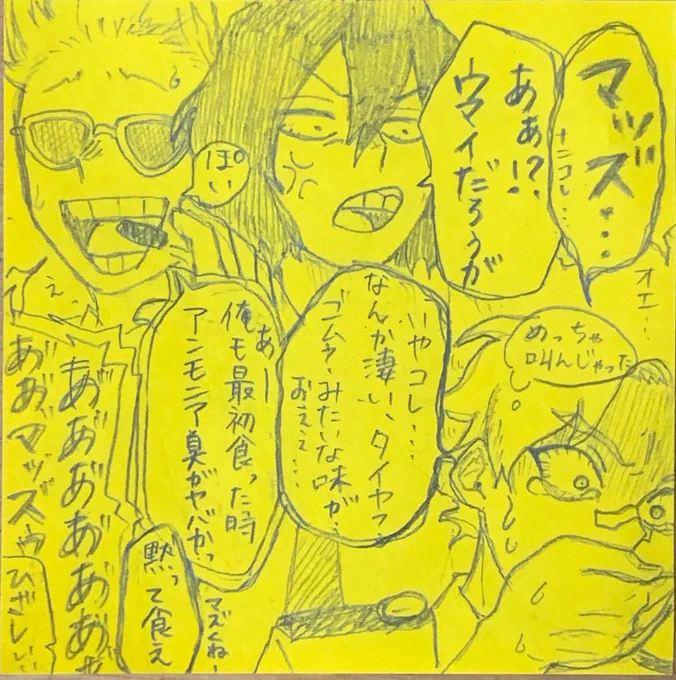 マッズ…
ナニコレ…
オエ…
あぁ!?
ウマイだろうが
ぽい
めっちゃ
叫んじゃった
いやコレ…
なんか凄い、タイヤっ
ゴムゥ みたいな味が…
おええ…
あー
俺も最初食った時
アンモニア臭がヤバかっ
マズくねー
黙って食え
え、
あ゙あ゙あ゙あ゙あ゙
あ゙あ゙マッズゥ
ひざしぃ